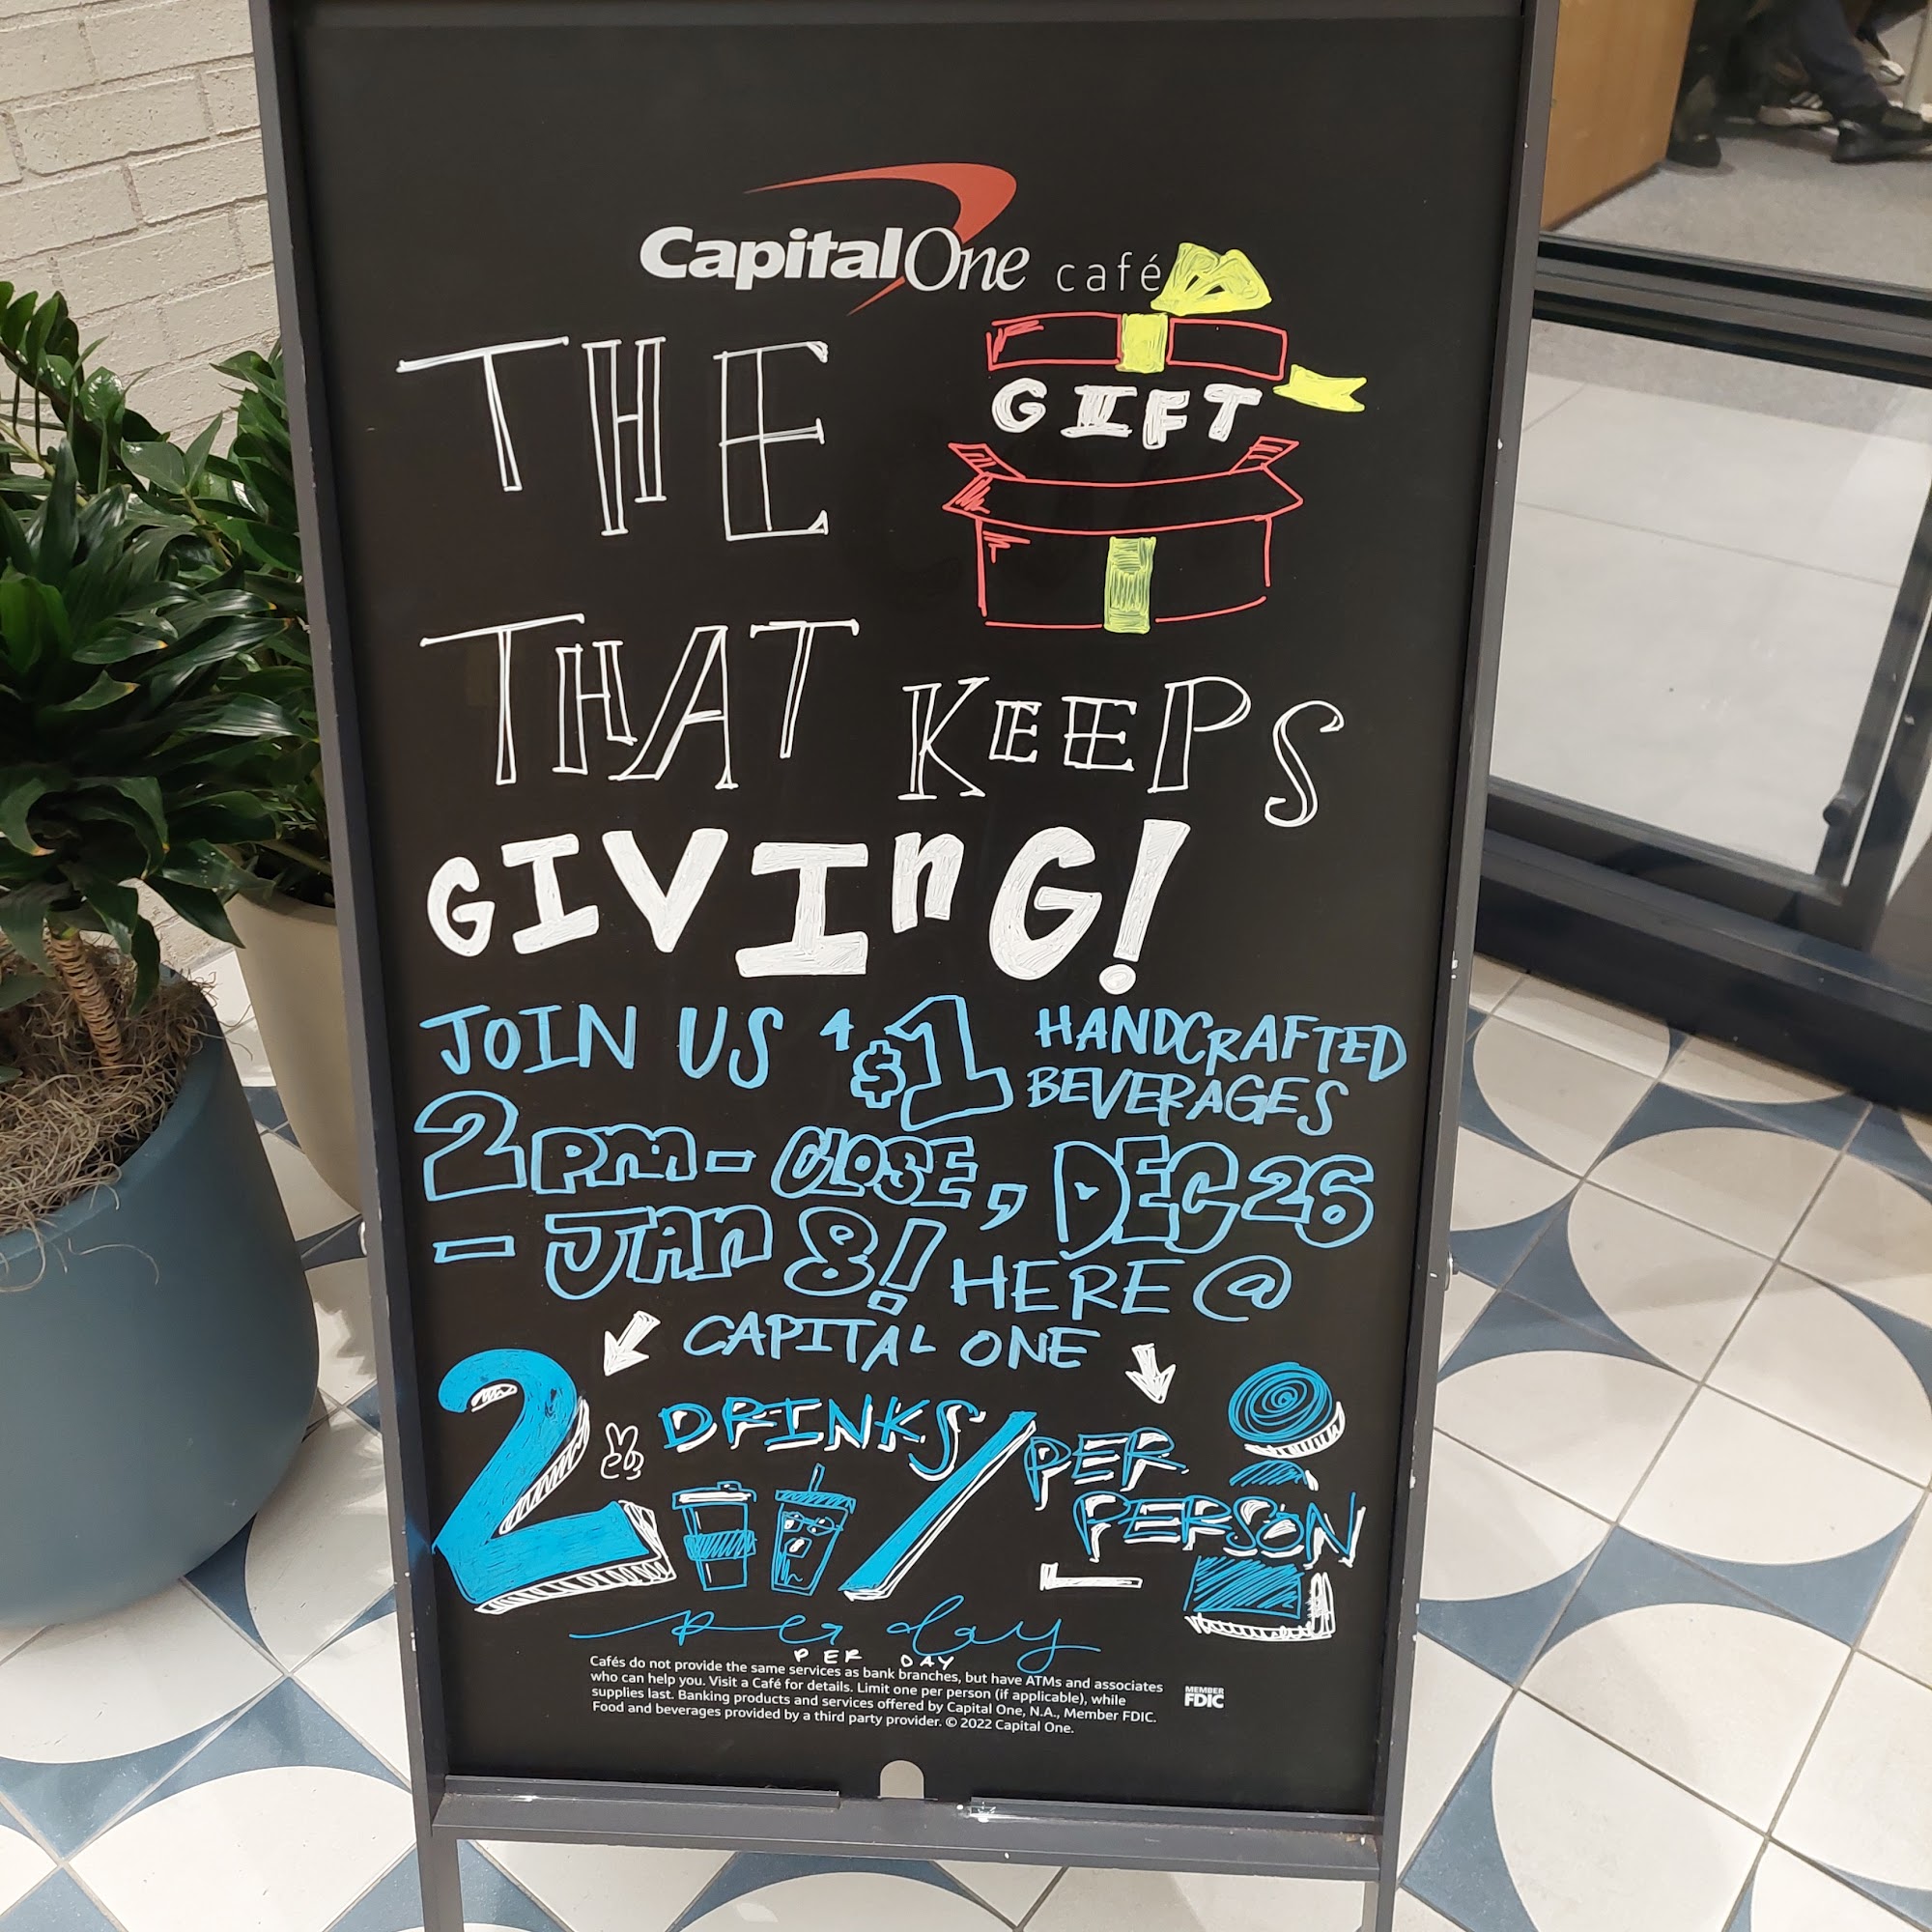 Capital One café
THE GIFT
THAT KEEPS
GIVInG!
JOIN US 4 $1 HANDCRAFTED BEVERAGES
2pm - CLOSE, DEC 26
- JAn 8! HERE @
CAPITAL ONE
2 DRINKS / PER PERSON
per day
PER DAY
Cafés do not provide the same services as bank branches, but have ATMs and associates
who can help you. Visit a Café for details. Limit one per person (if applicable), while
supplies last. Banking products and services offered by Capital One, N.A., Member FDIC.
Food and beverages provided by a third party provider. © 2022 Capital One.
MEMBER
FDIC